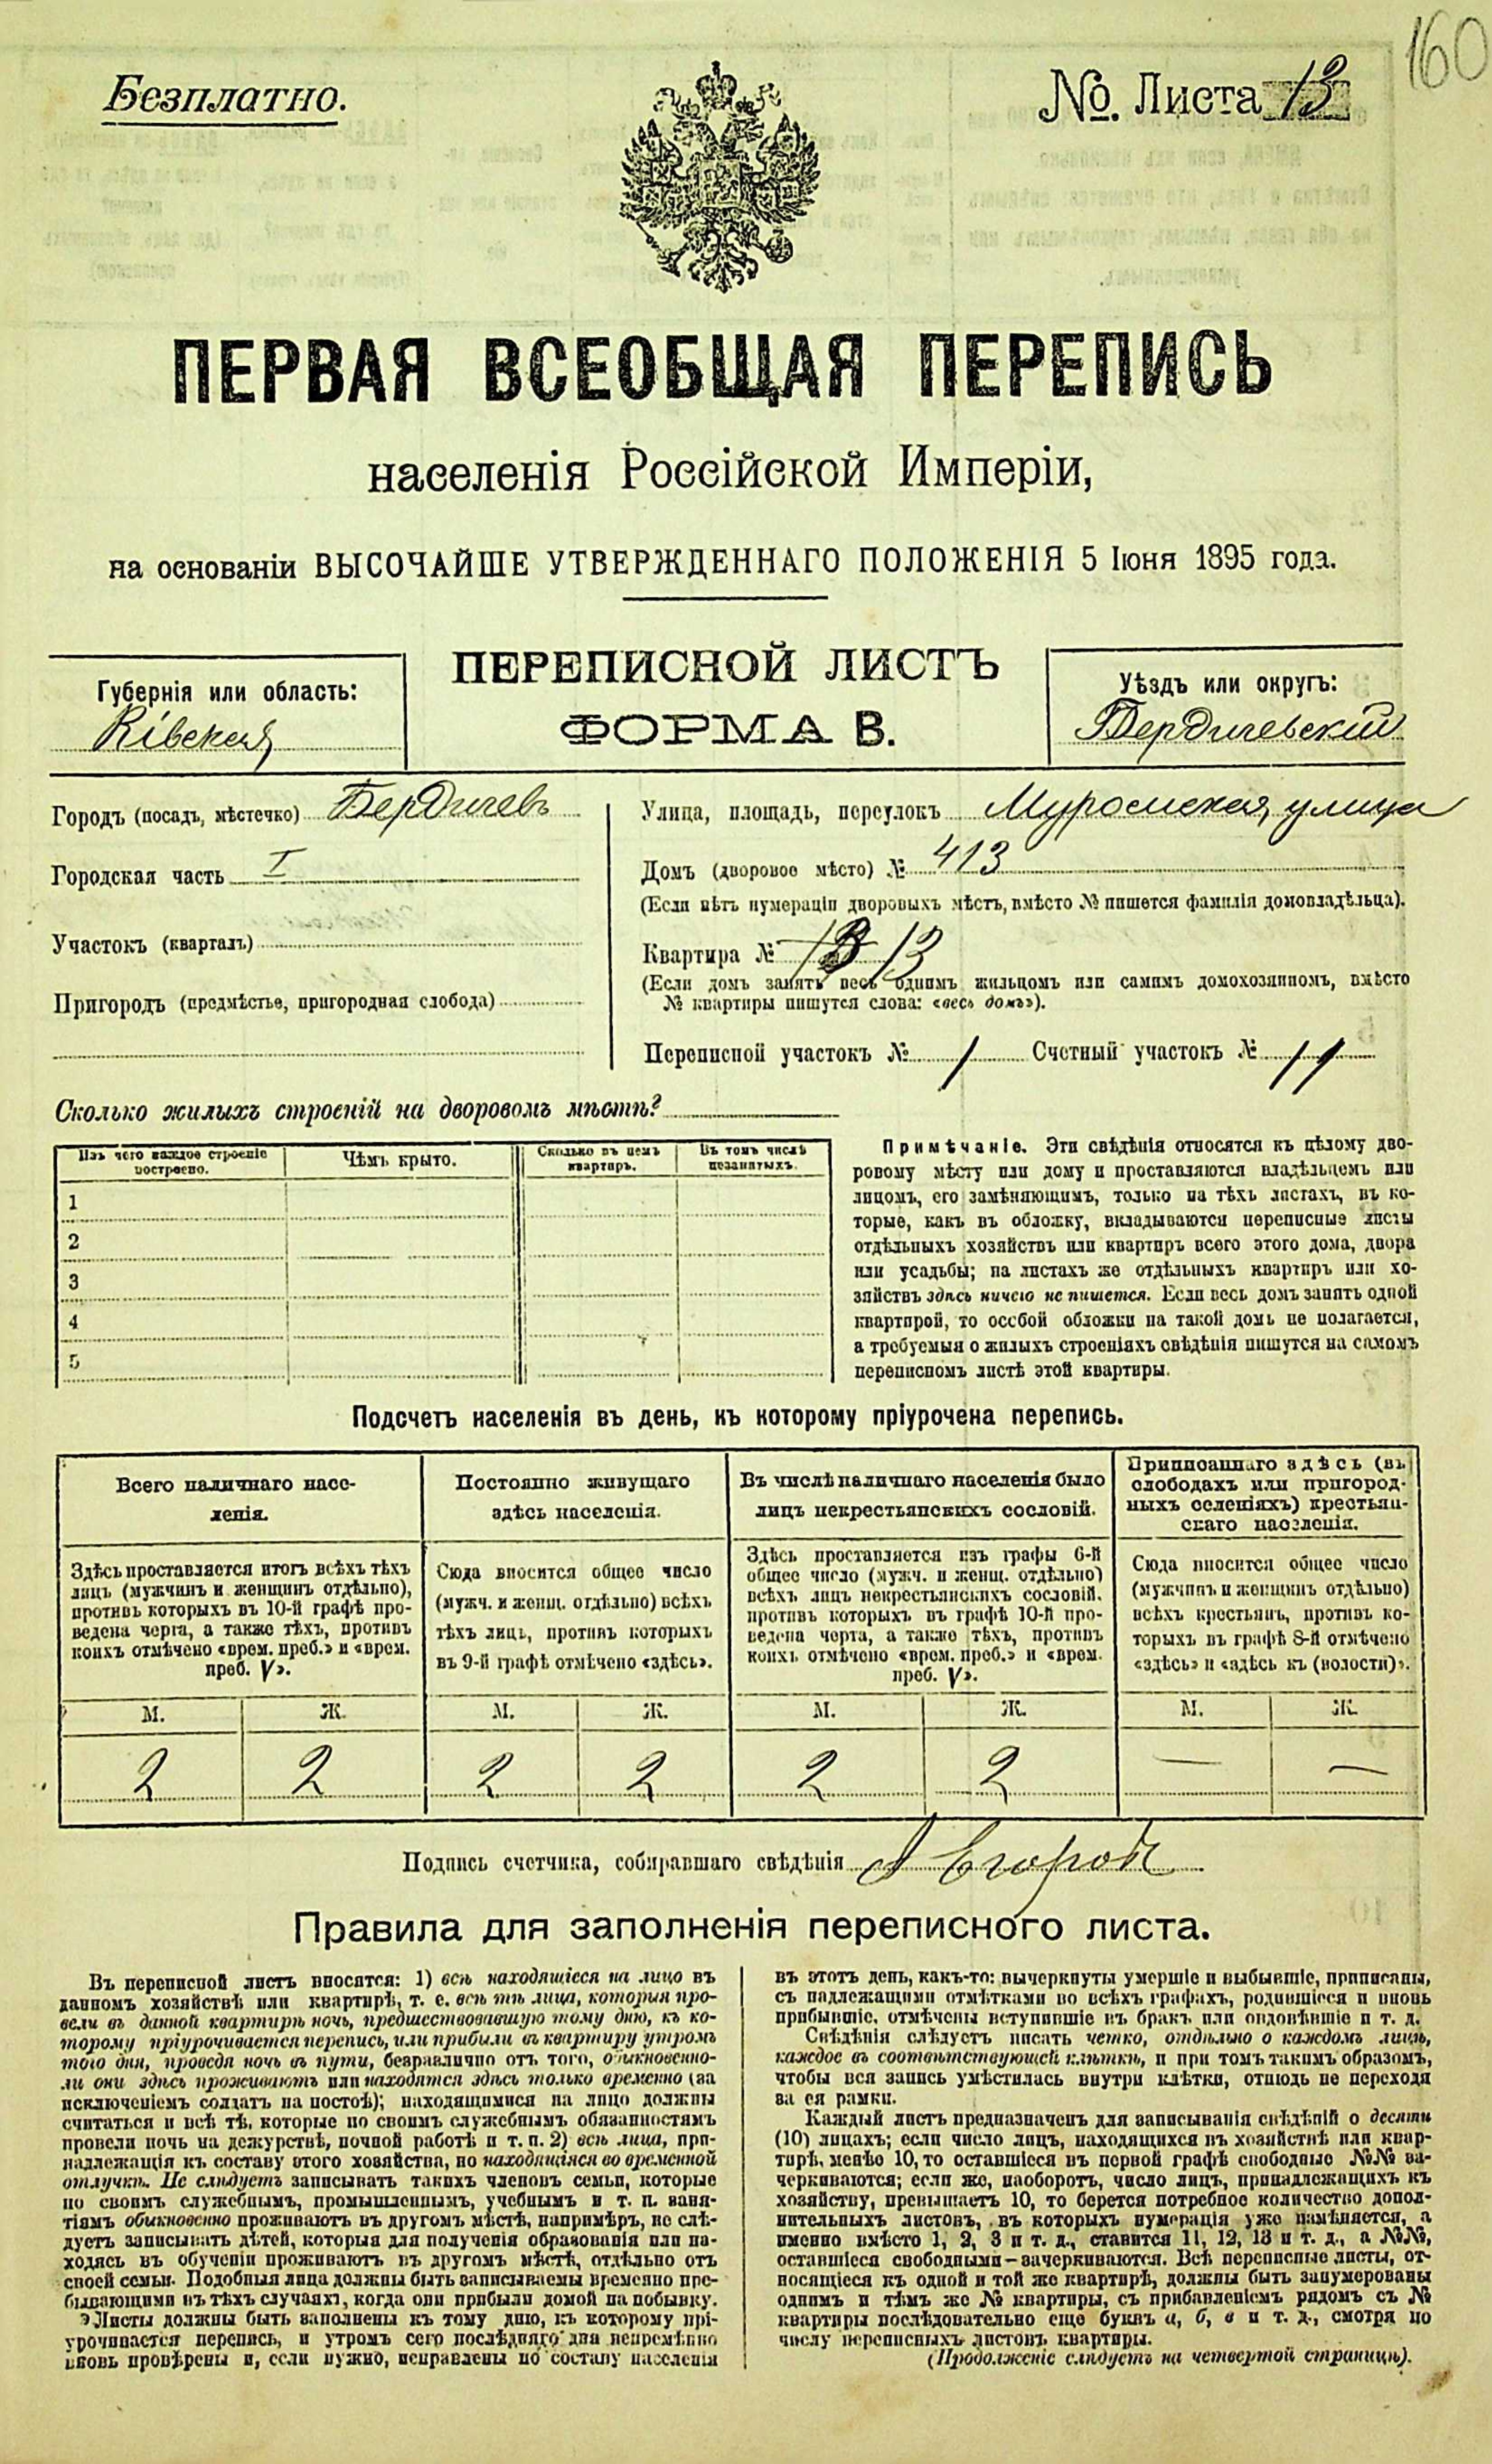 160
Безплатно.
№. Листа 13
ПЕРВАЯ ВСЕОБЩАЯ ПЕРЕПИСЬ
населенія Россійской Имперіи,
на основаніи ВЫСОЧАЙШЕ УТВЕРЖДЕННАГО ПОЛОЖЕНІЯ 5 Іюня 1895 года.
ПЕРЕПИСНОЙ ЛИСТЪ
ФОРМА В.
Губернія или область:
Кіевская
Уѣздъ или округъ:
Бердичевскій
Городъ (посадъ, мѣстечко) Бердичевъ
Городская часть I
Участокъ (кварталъ)
Пригородъ (предмѣстье, пригородная слобода)
Улица, площадь, переулокъ улица
Домъ (дворовое мѣсто) № 413
(Если нѣтъ нумераціи дворовыхъ мѣстъ, вмѣсто № пишется фамилія домовладѣльца).
Квартира № 13
(Если домъ занятъ весь однимъ жильцомъ или самимъ домохозяиномъ, вмѣсто
№ квартиры пишутся слова: «весь домъ»).
Переписной участокъ № 1 Счетный участокъ № 11
Сколько жилыхъ строеній на дворовомъ мѣстѣ?
Изъ чего каждое строеніе построено.
Чѣмъ крыто.
Сколько въ немъ квартиръ.
Въ томъ числѣ незанятыхъ.
1
2
3
4
5
Примѣчаніе. Эти свѣдѣнія относятся къ цѣлому дво-
ровому мѣсту или дому и проставляются владѣльцемъ или
лицомъ, его замѣняющимъ, только на тѣхъ листахъ, въ ко-
торые, какъ въ обложку, вкладываются переписные листы
отдѣльныхъ хозяйствъ или квартиръ всего этого дома, двора
или усадьбы; на листахъ же отдѣльныхъ квартиръ или хо-
зяйствъ здѣсь ничего не пишется. Если весь домъ занятъ одной
квартирой, то особой обложки на такой домъ не полагается,
а требуемыя о жилыхъ строеніяхъ свѣдѣнія пишутся на самомъ
переписномъ листѣ этой квартиры.
Подсчетъ населенія въ день, къ которому пріурочена перепись.
Всего наличнаго насе-
ленія.
Здѣсь проставляется итогъ всѣхъ тѣхъ
лицъ (мужчинъ и женщинъ отдѣльно),
противъ которыхъ въ 10-й графѣ про-
ведена черта, а также тѣхъ, противъ
коихъ отмѣчено «врем. преб.» и «врем.
преб. V».
Постоянно живущаго
здѣсь населенія.
Сюда вносится общее число
(мужч. и женщ. отдѣльно) всѣхъ
тѣхъ лицъ, противъ которыхъ
въ 9-й графѣ отмѣчено «здѣсь».
Въ числѣ наличнаго населенія было
лицъ некрестьянскихъ сословій.
Здѣсь проставляется изъ графы 6-й
общее число (мужч. и женщ. отдѣльно)
всѣхъ лицъ некрестьянскихъ сословій,
противъ которыхъ въ графѣ 10-й про-
ведена черта, а также тѣхъ, противъ
коихъ отмѣчено «врем. преб.» и «врем.
преб. V».
Приписаннаго здѣсь (въ
слободахъ или пригород-
ныхъ селеніяхъ) крестьян-
скаго населенія.
Сюда вносится общее число
(мужчинъ и женщинъ отдѣльно)
всѣхъ крестьянъ, противъ ко-
торыхъ въ графѣ 8-й отмѣчено
«здѣсь» и «здѣсь къ (волости)».
М. Ж. М. Ж. М. Ж. М. Ж.
2 2 2 2 2 2 — —
Подпись счетчика, собиравшаго свѣдѣнія
Правила для заполненія переписного листа.
Въ переписной листъ вносятся: 1) всѣ находящіеся на лицо въ
данномъ хозяйствѣ или квартирѣ, т. е. всѣ тѣ лица, которыя про-
вели въ данной квартирѣ ночь, предшествовавшую тому дню, къ ко-
торому пріурочивается перепись, или прибыли въ квартиру утромъ
того дня, проведя ночь въ пути, безразлично отъ того, обыкновенно-
ли они здѣсь проживаютъ или находятся здѣсь только временно (за
исключеніемъ солдатъ на постоѣ); находящимися на лицо должны
считаться и всѣ тѣ, которые по своимъ служебнымъ обязанностямъ
провели ночь на дежурствѣ, ночной работѣ и т. п. 2) всѣ лица, при-
надлежащія къ составу этого хозяйства, но находящіяся во временной
отлучкѣ. Не слѣдуетъ записывать такихъ членовъ семьи, которые
по своимъ служебнымъ, промышленнымъ, учебнымъ и т. п. заня-
тіямъ обыкновенно проживаютъ въ другомъ мѣстѣ, напримѣръ, не слѣ-
дуетъ записывать дѣтей, которыя для полученія образованія или на-
ходясь въ обученіи проживаютъ въ другомъ мѣстѣ, отдѣльно отъ
своей семьи. Подобныя лица должны быть записываемы временно пре-
бывающими въ тѣхъ случаяхъ, когда они прибыли домой на побывку.
Листы должны быть заполнены къ тому дню, къ которому прі-
урочивается перепись, и утромъ сего послѣдняго дня непремѣнно
вновь провѣрены и, если нужно, исправлены по составу населенія
въ этотъ день, какъ-то: вычеркнуты умершіе и выбывшіе, приписаны,
съ надлежащими отмѣтками во всѣхъ графахъ, родившіеся и вновь
прибывшіе, отмѣчены вступившіе въ бракъ или овдовѣвшіе и т. д.
Свѣдѣнія слѣдуетъ писать четко, отдѣльно о каждомъ лицѣ,
каждое въ соотвѣтствующей клѣткѣ, и при томъ такимъ образомъ,
чтобы вся запись умѣстилась внутри клѣтки, отнюдь не переходя
за ея рамки.
Каждый листъ предназначенъ для записыванія свѣдѣній о десяти
(10) лицахъ; если число лицъ, находящихся въ хозяйствѣ или квар-
тирѣ, менѣе 10, то оставшіеся въ первой графѣ свободные №№ за-
черкиваются; если же, наоборотъ, число лицъ, принадлежащихъ къ
хозяйству, превышаетъ 10, то берется потребное количество допол-
нительныхъ листовъ, въ которыхъ нумерація уже измѣняется, а
именно вмѣсто 1, 2, 3 и т. д., ставится 11, 12, 13 и т. д., а №№,
оставшіеся свободными—зачеркиваются. Всѣ переписные листы, от-
носящіеся къ одной и той же квартирѣ, должны быть занумерованы
однимъ и тѣмъ же № квартиры, съ прибавленіемъ рядомъ съ №
квартиры послѣдовательно еще буквъ а, б, в и т. д., смотря по
числу переписныхъ листовъ квартиры.
(Продолженіе слѣдуетъ на четвертой страницѣ).